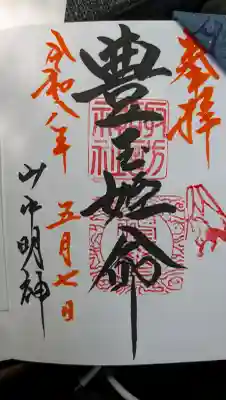 奉拝
豊玉姫命
令和八年
五月七日
山中明神